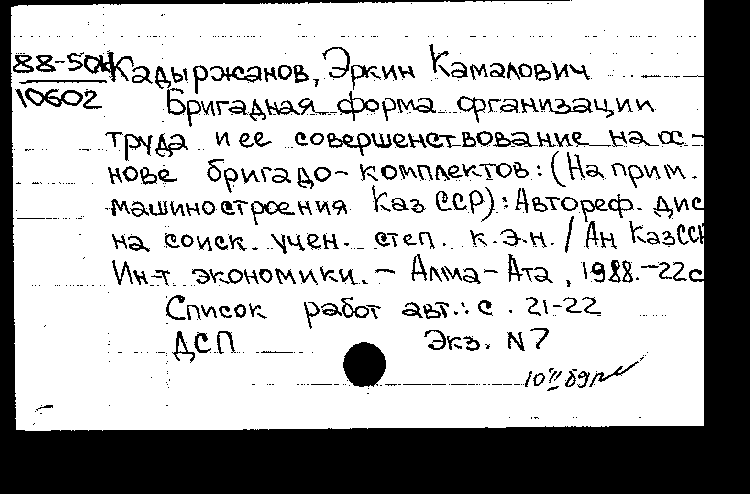 88-50 Кадыржанов, Эркин Камалович
10602 Бригадная форма организации
труда и ее совершенствование на ос-
нове бригадо-комплектов: (На прим.
машиностроения Каз ССР): Автореф. дис
на соиск. учен. степ. к.э.н. / Ан КазССР
Ин-т экономики. - Алма-Ата, 1988.-22с
Список работ авт.: с. 21-22
ДСП Экз. N7